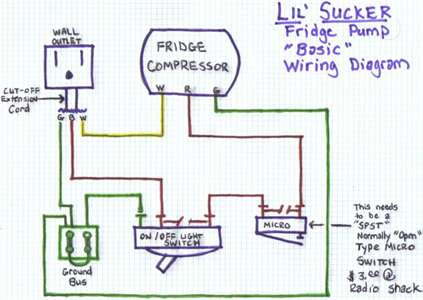 LIL' SUCKER
Fridge Pump
"Basic"
Wiring Diagram
WALL
OUTLET
FRIDGE
COMPRESSOR
W R G
CUT-OFF
Extension
Cord
G B W
ON/OFF LIGHT
SWITCH
MICRO
Ground
Bus
This needs
to be a
"SPST"
Normally "Opn"
Type MICRO
SWITCH
$3.00 @
Radio Shack